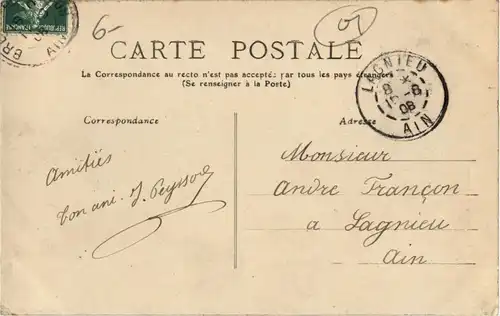 6-
01
CARTE POSTALE
La Correspondance au recto n'est pas acceptée par tous les pays étrangers
(Se renseigner à la Poste)
LAGNIEU
8 * 
15 -8
08
AIN
AIN
Correspondance
Adresse
Amitiés
ton ami J. Peysson
Monsieur
André Françon
a Lagnieu
Ain